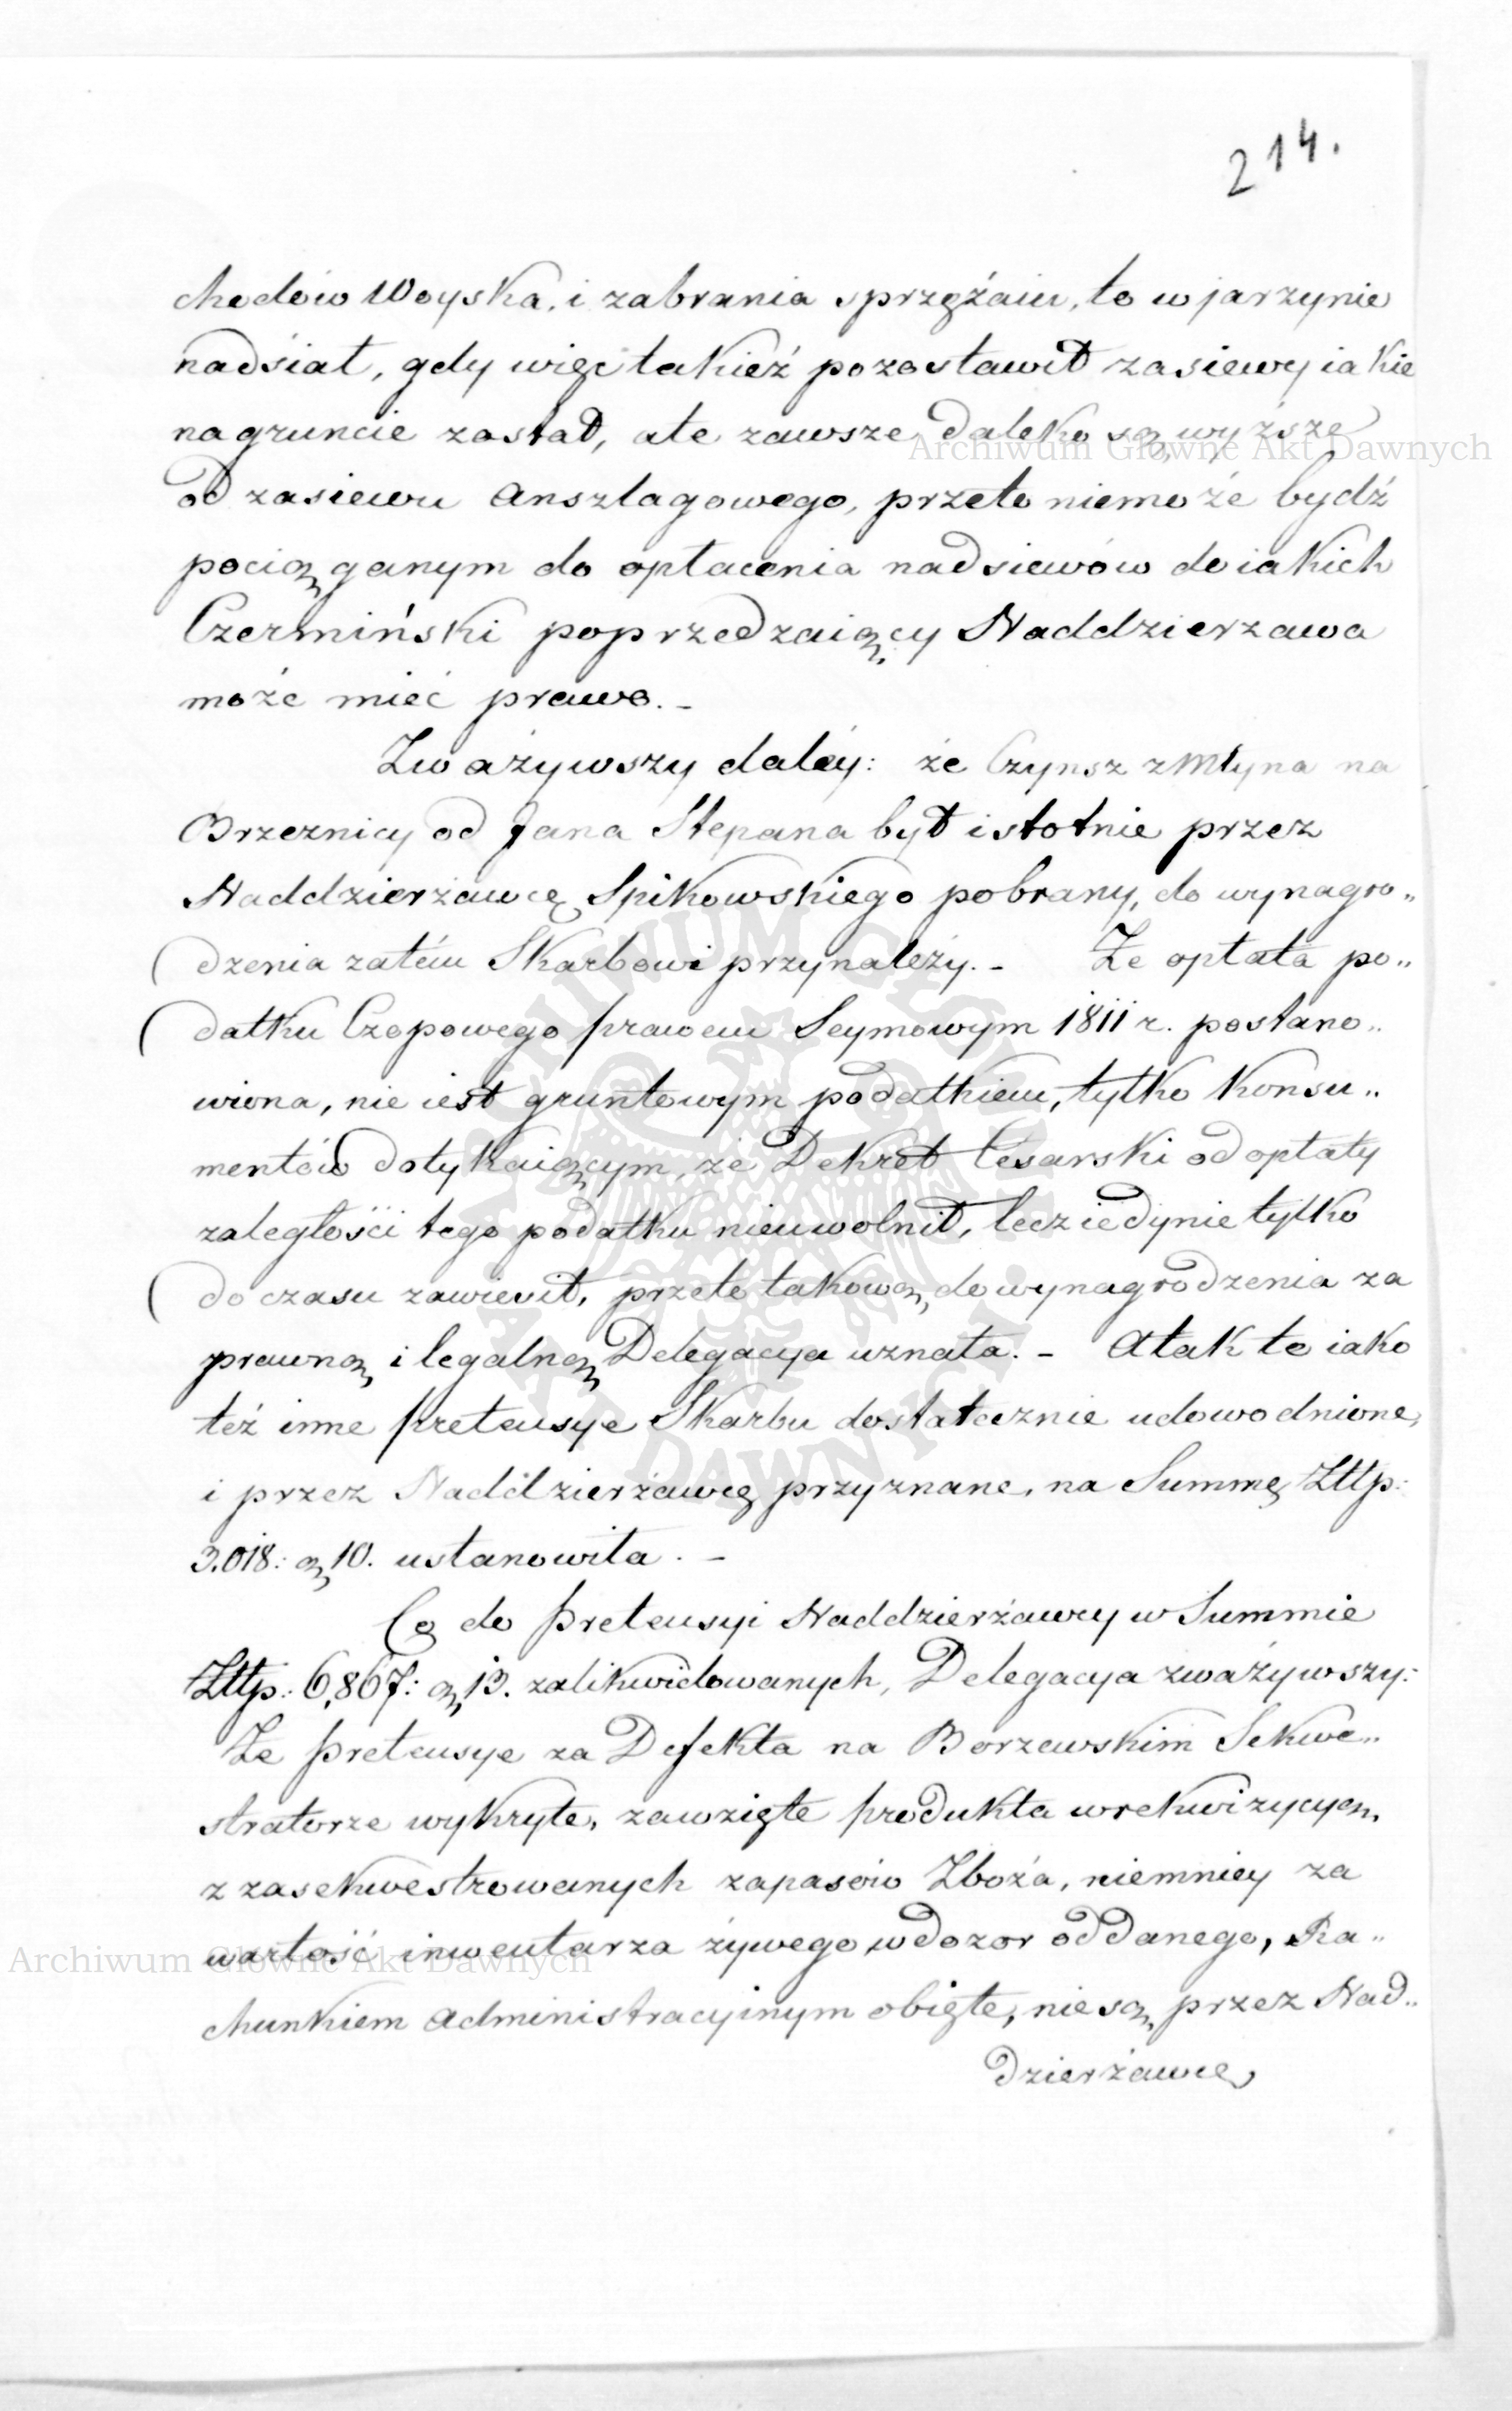 214.
chodów Woyska, i zabrania sprzężaiu, to w jarzynie
nadsiał, gdy więc takież pozostawił zasiewy iakie
na gruncie zastał, ale zawsze daleko są wyższe
od zasiewu Anszlagowego, przeto niemoże bydź
pociąganym do opłacenia nadsiewów do iakich
Czermiński poprzedzaiący Naddzierzawa
może mieć prawo. -
Zważywszy daléy: że Czynsz z Młyna na
Brzeznicy od Jana Stepana był istotnie przez
Naddzierżawcę Spikowskiego pobrany, do wynagro„
dzenia zatém Skarbowi przynależy. - Że opłata po„
datku Czopowego prawem Seymowym 1811 r. postano„
wiona, nie iest gruntowym podatkiem, tylko Konsu„
mentów dotykaiącym, że Dekret Cesarski od opłaty
zaległości tego podatku nieuwolnił, lecz iedynie tylko
do czasu zawiesił, przeto takową do wynagrodzenia za
prawną i legalną Delegacya uznała. - A tak to iako
też inne pretensye Skarbu dostatecznie udowodnione,
i przez Naddzierżawcę przyznane, na Summę Złłp:
3.018: gą 10. ustanowiła. -
Co do pretensyi Naddzierżawcy w Summie
Złłp: 6,867: gą 13. zalikwidowanych, Delegacya zważywszy:
Że pretensye za Defekta na Borzewskim Sekwe„
stratorze wykryte, zawzięte produkta w rekwizycyą,
z zasekwestrowanych zapasów Zboża, niemniey za
wartość inwentarza żywego w dozor oddanego, Ra„
chunkiem Administracyinym obięte, nie są przez Nad„
dzierżawcę
Archiwum Główne Akt Dawnych
Archiwum Główne Akt Dawnych
ARCHIWUM GŁÓWNE AKT DAWNYCH